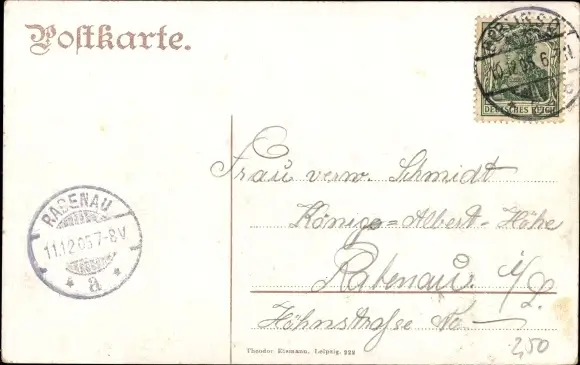 Postkarte.
10.12.05. 6-
DEUTSCHES REICH
Frau verw. Schmidt
Königs=Albert=Höhe
RABENAU
11.12.05 7-8V
* a *
Rabenau i/S.
Höhnstraße No —
Theodor Eismann, Leipzig. 222
2,50